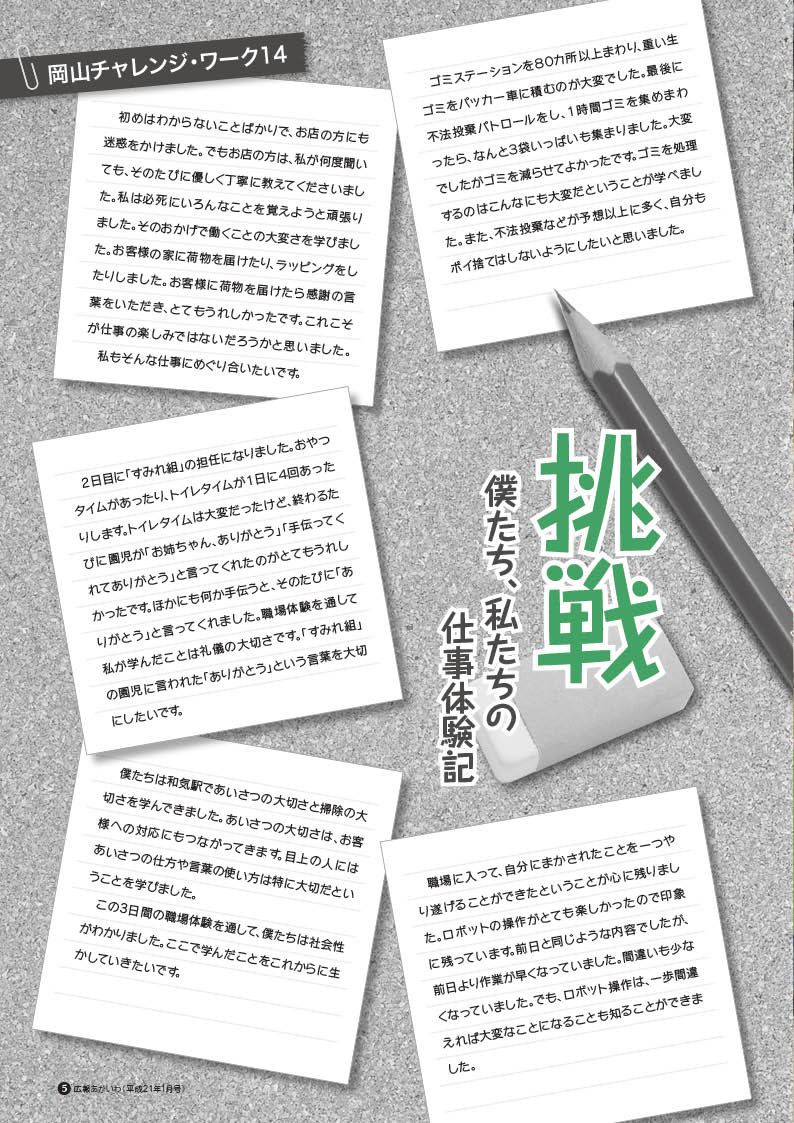 岡山チャレンジ・ワーク14
初めはわからないことばかりで、お店の方にも
迷惑をかけました。でもお店の方は、私が何度聞い
ても、そのたびに優しく丁寧に教えてくださいまし
た。私は必死にいろんなことを覚えようと頑張り
ました。そのおかげで働くことの大変さを学びまし
た。お客様の家に荷物を届けたり、ラッピングをし
たりしました。お客様に荷物を届けたら感謝の言
葉をいただき、とてもうれしかったです。これこそ
が仕事の楽しみではないだろうかと思いました。
私もそんな仕事にめぐり合いたいです。
ゴミステーションを80カ所以上まわり、重い生
ゴミをパッカー車に積むのが大変でした。最後に
不法投棄パトロールをし、1時間ゴミを集めまわ
ったら、なんと3袋いっぱいも集まりました。大変
でしたがゴミを減らせてよかったです。ゴミを処理
するのはこんなにも大変だということが学べまし
た。また、不法投棄などが予想以上に多く、自分も
ポイ捨てはしないようにしたいと思いました。
挑戦
僕たち、私たちの
仕事体験記
2日目に「すみれ組」の担任になりました。おやつ
タイムがあったり、トイレタイムが1日に4回あった
りします。トイレタイムは大変だったけど、終わるた
びに園児が「お姉ちゃん、ありがとう」「手伝ってく
れてありがとう」と言ってくれたのがとてもうれし
かったです。ほかにも何か手伝うと、そのたびに「あ
りがとう」と言ってくれました。職場体験を通して
私が学んだことは礼儀の大切さです。「すみれ組」
の園児に言われた「ありがとう」という言葉を大切
にしたいです。
僕たちは和気駅であいさつの大切さと掃除の大
切さを学んできました。あいさつの大切さは、お客
様への対応にもつながってきます。目上の人には
あいさつの仕方や言葉の使い方は特に大切だとい
うことを学びました。
この3日間の職場体験を通して、僕たちは社会性
がわかりました。ここで学んだことをこれからに生
かしていきたいです。
職場に入って、自分にまかされたことを一つや
り遂げることができたということが心に残りまし
た。ロボットの操作がとても楽しかったので印象
に残っています。前日と同じような内容でしたが、
前日より作業が早くなっていました。間違いも少な
くなっていました。でも、ロボット操作は、一歩間違
えれば大変なことになることも知ることができま
した。
5 広報あかいわ(平成21年1月号)